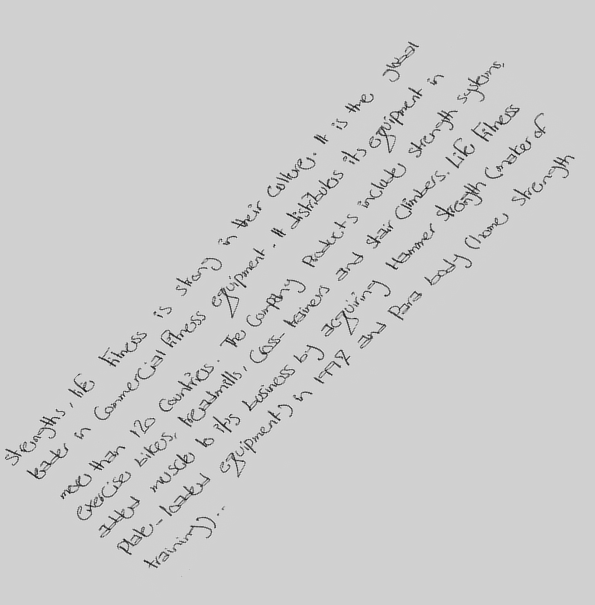 strengths, life fitness is strong in their culture. It is the global
leader in Commercial fitness equipment. It distributes its equipment in
more than 120 Countries. The Company Products include strength systems,
exercise bikes, treadmills, cross-trainers and stair Climbers. Life Fitness
added muscle to its business by acquiring Hammer strength (maker of
Plate-loaded equipment) in 1998 and Para body (home strength
training)...